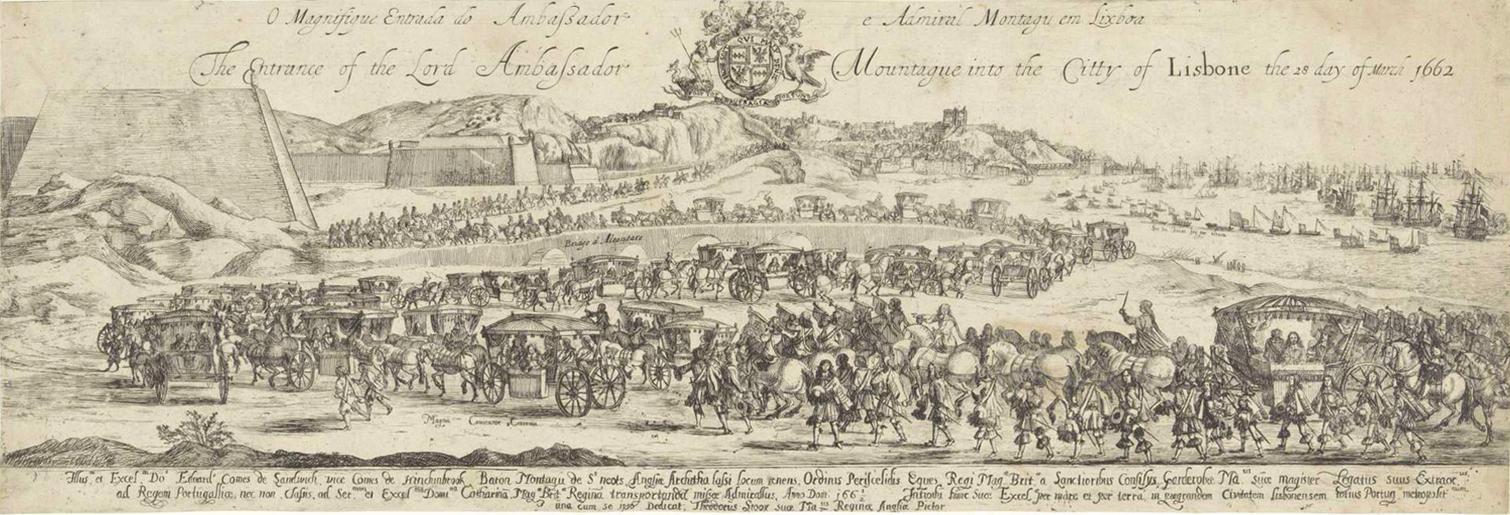 O Magnifique Entrada do Ambassador e Admiral Montagu em Lixboa
The Entrance of the Lord Ambassador Mountague into the Citty of Lisbone the 28 day of March 1662
Bridge d Alcantare
Magni Comitatus Caterua
Illus et Excel Do Edoard Comes de Sandwich, vice Comes de Hinchinbrook Baron Montagu de St neots, Angliæ Locum tenens, Ordinis Periscelidis Eques, Regi Mag Brit a Sanctioribus Consilijs, Garderobæ Ma suæ magister Legatus suus Extraor
ad Regem Portugalliæ, nec non Clasis, ad Ser et Excel Domi Catharina Mag Brit Regina missæ Admirallus, Anno Dom. 166 hanc suæ Excel per mare et per terra in Civitatem lisbonensem totius Portug
una cum se Dedicat, Theodorus Stoop suæ Ma Reginæ Angliæ Pictor